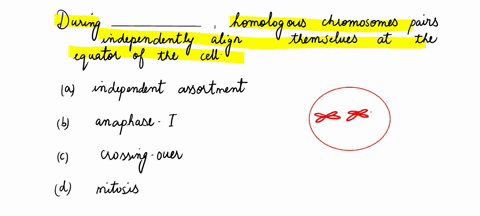 During __________ , homologous chromosomes pairs
independently align themselves at the
equator of the cell.
(a) independent assortment
(b) anaphase-I
(c) crossing-over
(d) mitosis